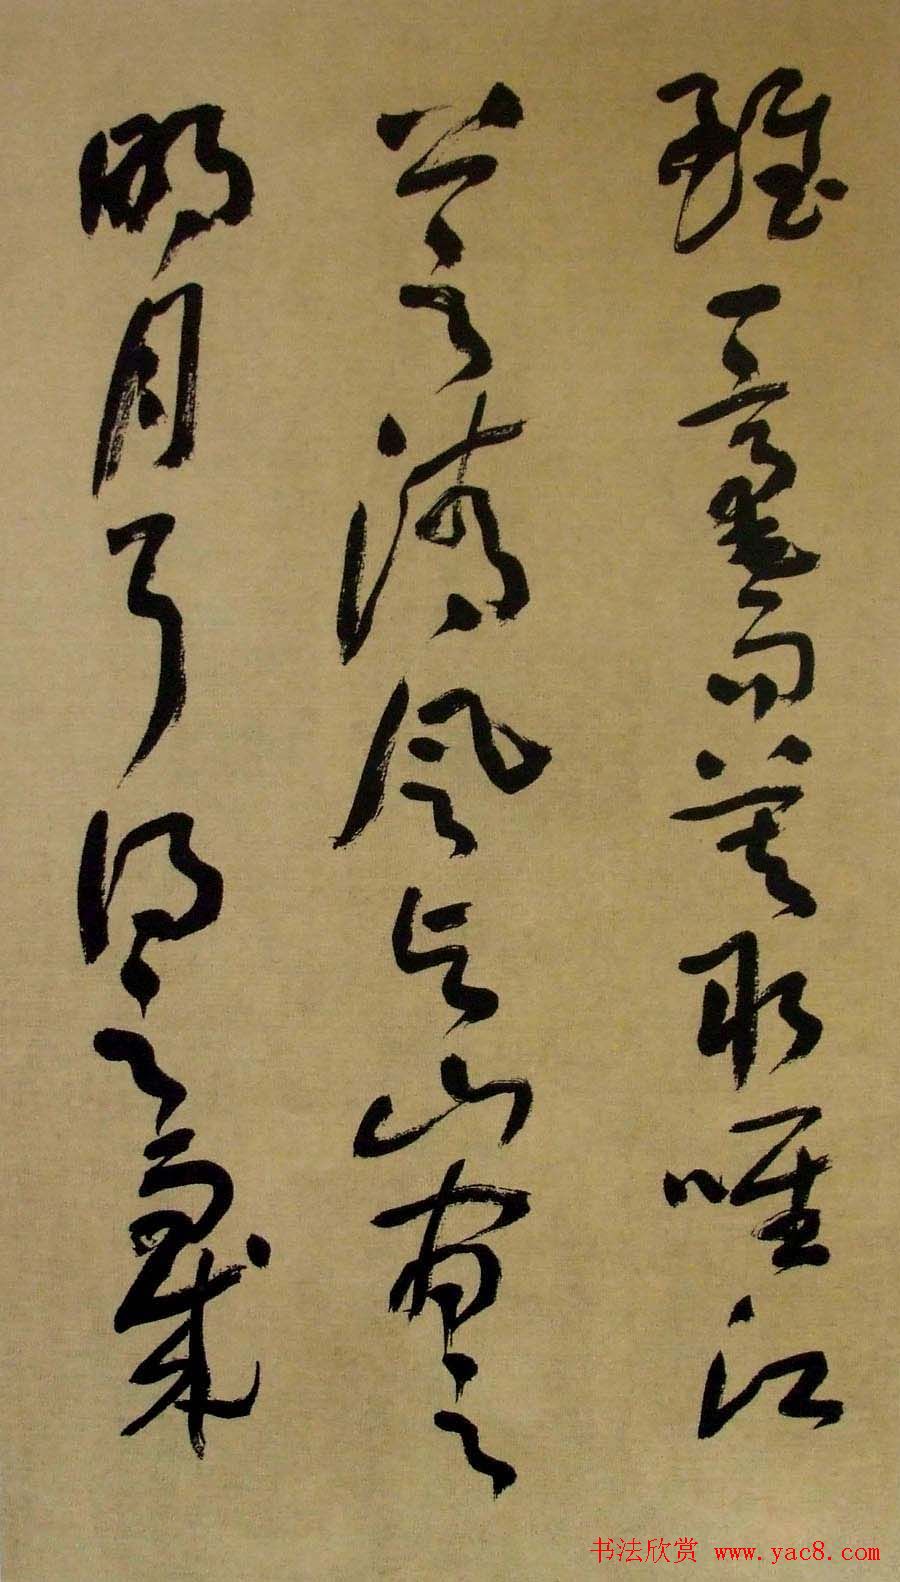 雖一毫而莫取唯江
上之清風与山間之
明月耳得之而成
书法欣赏 www.yac8.com